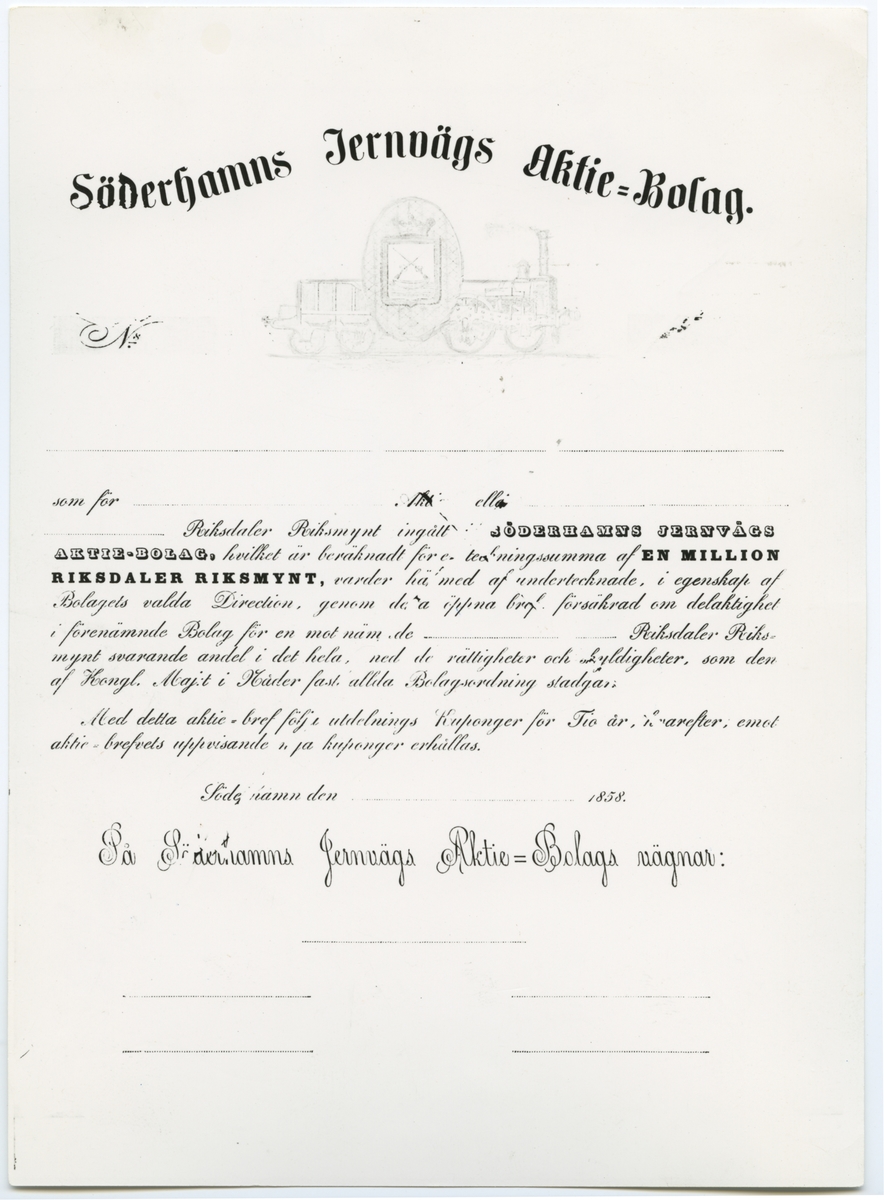 Söderhamns Jernvägs Aktie=Bolag.
No.
som för Akt ell
Riksdaler Riksmynt ingått i SÖDERHAMNS JERNVÄGS
AKTIE-BOLAG, hvilket är beräknadt för e teckningssumma af EN MILLION
RIKSDALER RIKSMYNT, varder härmed af undertecknade, i egenskap af
Bolagets valda Direction, genom detta öppna bref försäkrad om delaktighet
i förenämnde Bolag för en mot nämnde Riksdaler Riks=
mynt svarande andel i det hela, med de rättigheter och skyldigheter, som den
af Kongl. Maj:t i Nåder fastställda Bolagsordning stadgar.
Med detta aktie=bref följa utdelnings Kuponger för Tio år, hvarefter, emot
aktie=brefvets uppvisande nya kuponger erhållas.
Söderhamn den 1858.
På Söderhamns Jernvägs Aktie=Bolags vägnar: